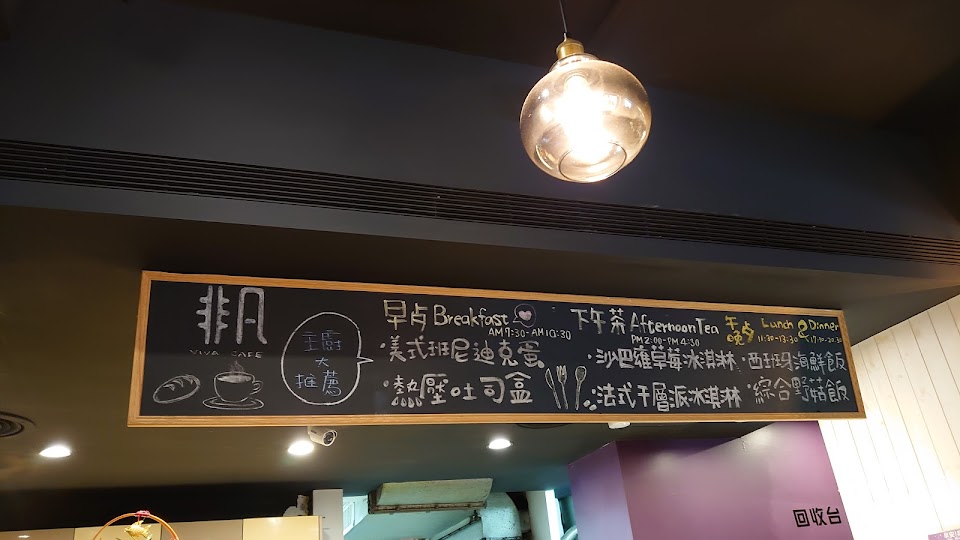 非凡
VIVA CAFE
主廚
大
推薦
早点 Breakfast
AM7:30-AM10:30
·美式班尼迪克蛋
·熱壓吐司盒
下午茶 Afternoon Tea
PM2:00-PM4:30
·沙巴雍草莓冰淇淋
·法式千層派冰淇淋
午晚点 Lunch & Dinner
11:30-13:30 17:10-20:30
·西班牙海鮮飯
·綜合野菇飯
回收台